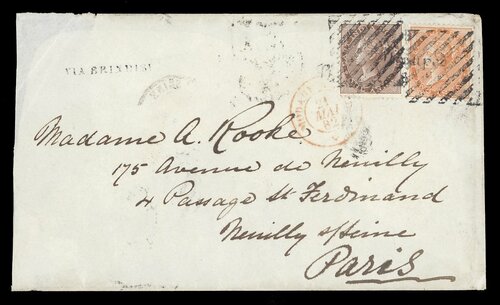 VIA BRINDISI
Madame A. Rooke
175 Avenue de Neuilly
4 Passage St Ferdinand
Neuilly s/Seine
Paris